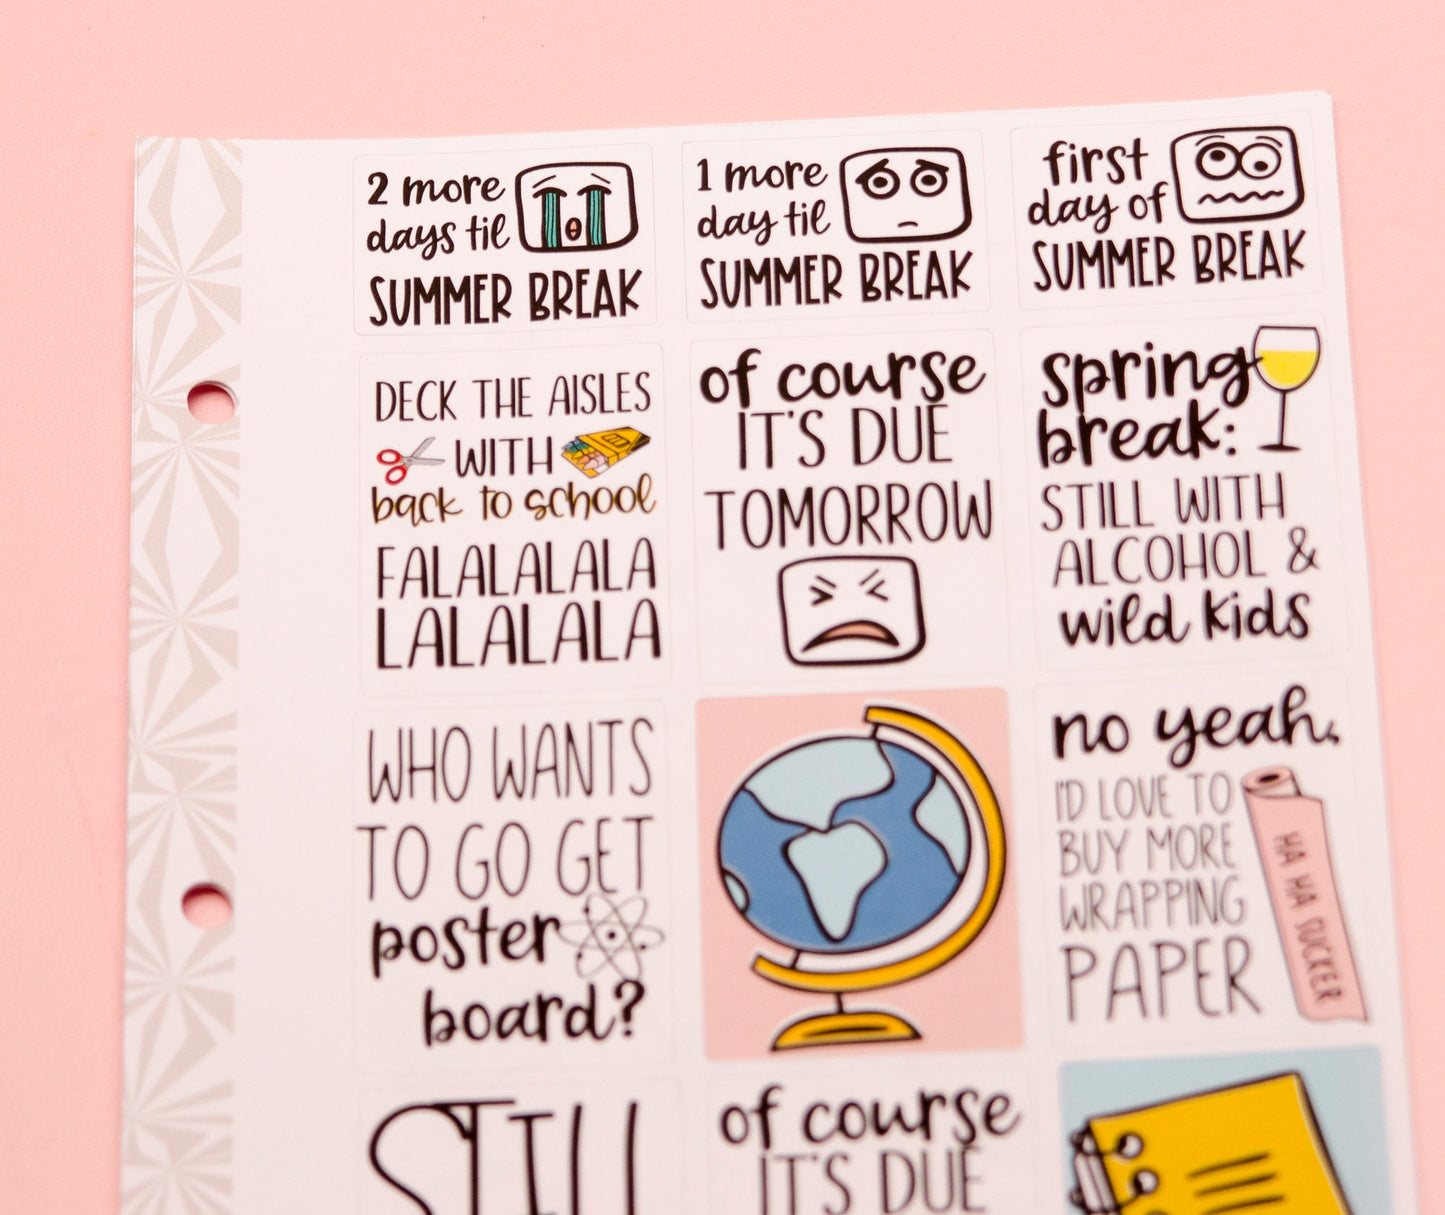 2 more
days til
SUMMER BREAK
1 more
day til
SUMMER BREAK
first
day of
SUMMER BREAK
DECK THE AISLES
WITH
back to school
FALALALALA
LALALALA
of course
IT'S DUE
TOMORROW
spring
break:
STILL WITH
ALCOHOL &
wild kids
WHO WANTS
TO GO GET
poster
board?
no yeah,
I'D LOVE TO
BUY MORE
WRAPPING
PAPER
HA HA SUCKER
STILL
of course
IT'S DUE